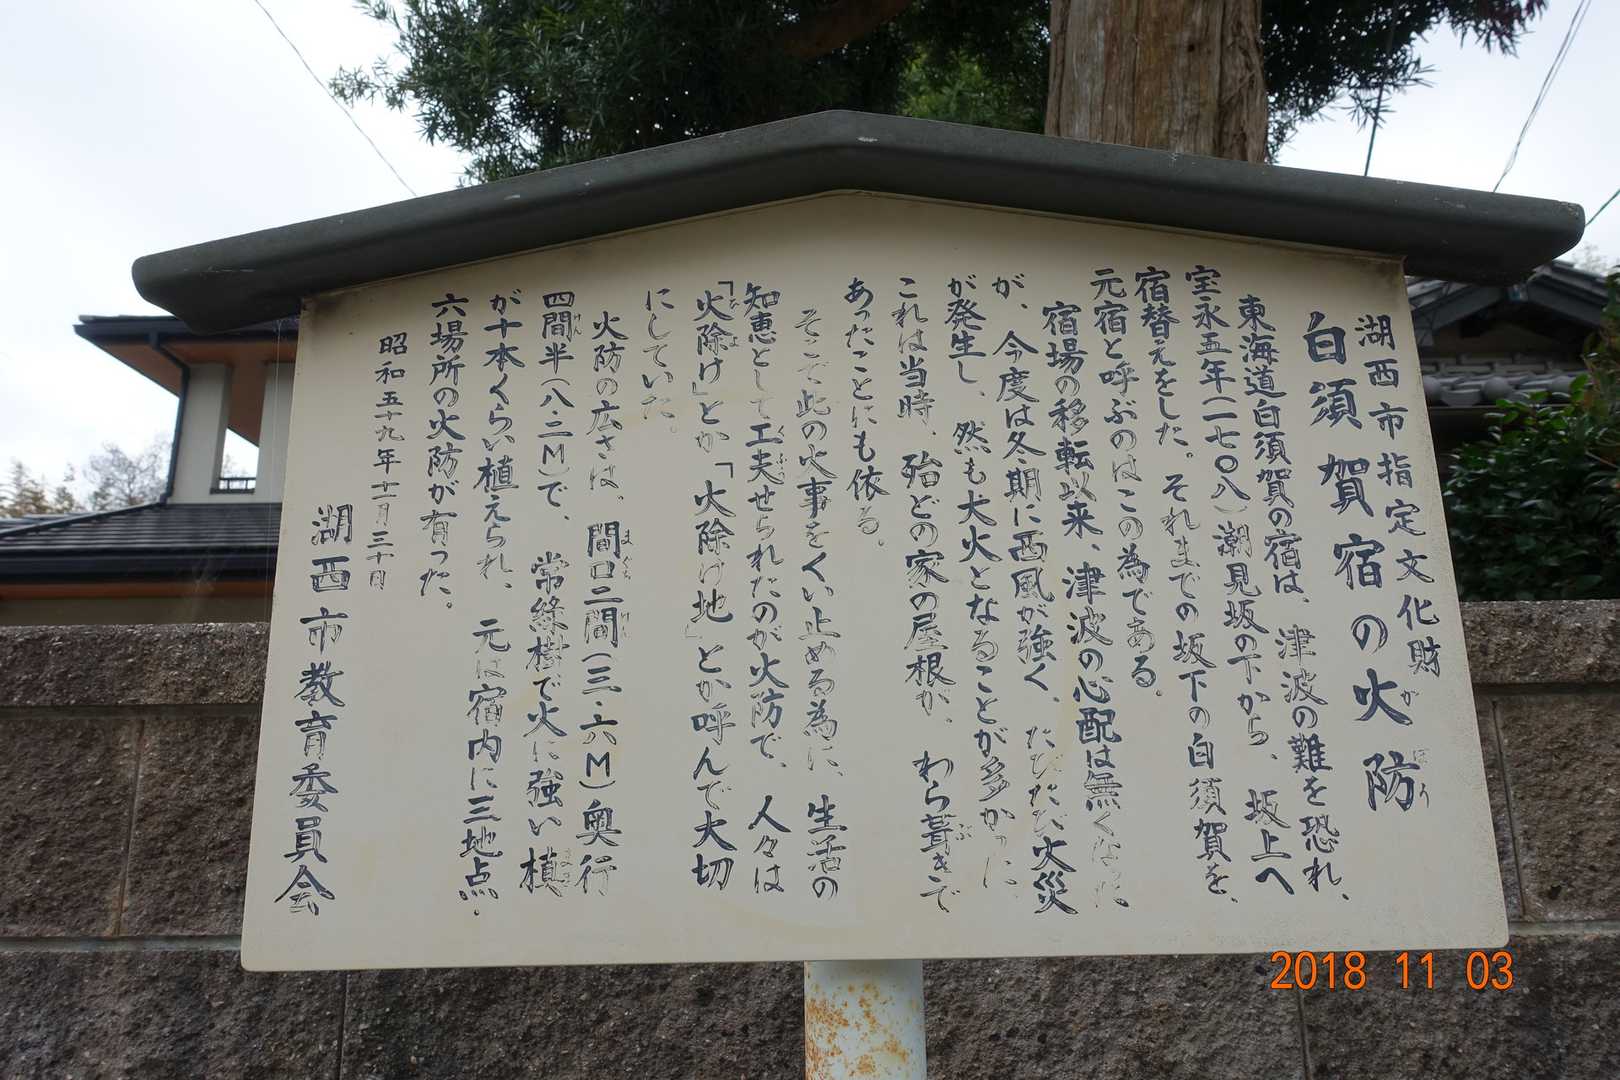 湖西市指定文化財
白須賀宿の火防
東海道白須賀の宿は、津波の難を恐れ、
宝永五年(一七〇八)潮見坂の下から、坂上へ
宿替えをした。それまでの坂下の白須賀を、
元宿と呼ぶのはこの為である。
宿場の移転以来、津波の心配は無くなった
が、今度は冬期に西風が強く、たびたび火災
が発生し、然も大火となることが多かった
これは当時、殆どの家の屋根が、わら葺きで
あったことにも依る。
そこで此の火事をくい止める為に、生活の
知恵として工夫せられたのが火防で、人々は
「火除け」とか「火除け地」とか呼んで大切
にしていた。
火防の広さは。間口二間(三・六M)奥行
四間半(八・二M)で、常緑樹で火に強い槙
が十本くらい植えられ、元は宿内に三地点・
六場所の火防が有った。
昭和五十九年十一月三十日
湖西市教育委員会
2018 11 03